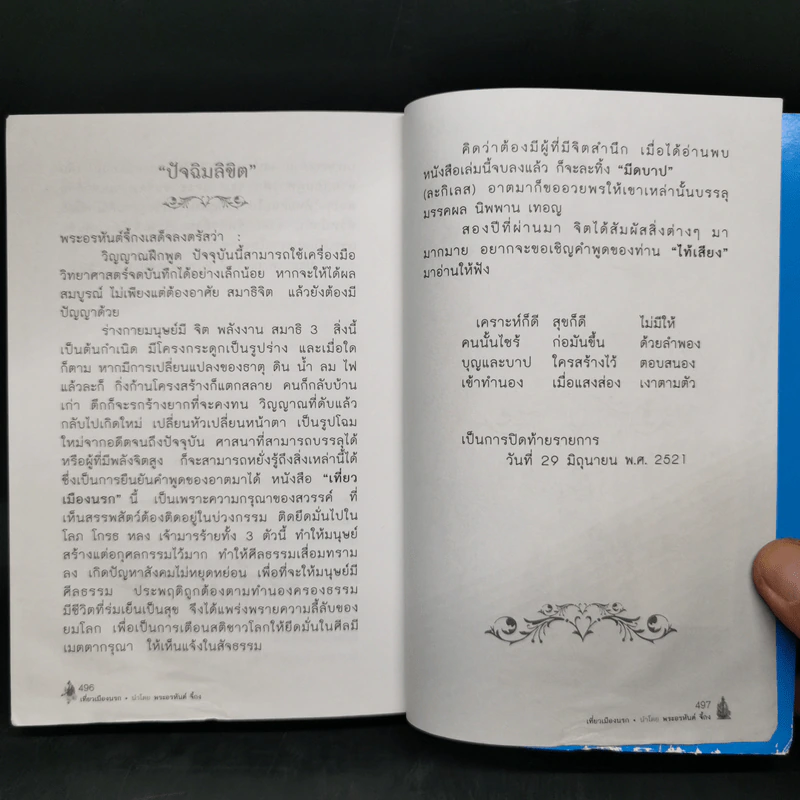 “ปัจฉิมลิขิต”
พระอรหันต์จี้กงเสด็จลงตรัสว่า :
วิญญาณฝึกพูด ปัจจุบันนี้สามารถใช้เครื่องมือ
วิทยาศาสตร์จดบันทึกได้อย่างเล็กน้อย หากจะให้ได้ผล
สมบูรณ์ ไม่เพียงแต่ต้องอาศัย สมาธิจิต แล้วยังต้องมี
ปัญญาด้วย
ร่างกายมนุษย์มี จิต พลังงาน สมาธิ 3 สิ่งนี้
เป็นต้นกำเนิด มีโครงกระดูกเป็นรูปร่าง และเมื่อใด
ก็ตาม หากมีการเปลี่ยนแปลงของธาตุ ดิน น้ำ ลม ไฟ
แล้วละก็ กิ่งก้านโครงสร้างก็แตกสลาย คนก็กลับบ้าน
เก่า ตึกก็จะรกร้างยากที่จะคงทน วิญญาณที่ดับแล้ว
กลับไปเกิดใหม่ เปลี่ยนหัวเปลี่ยนหน้าตา เป็นรูปโฉม
ใหม่จากอดีตจนถึงปัจจุบัน ศาสนาที่สามารถบรรลุได้
หรือผู้ที่มีพลังจิตสูง ก็จะสามารถหยั่งรู้ถึงสิ่งเหล่านี้ได้
ซึ่งเป็นการยืนยันคำพูดของอาตมาได้ หนังสือ “เที่ยว
เมืองนรก” นี้ เป็นเพราะความกรุณาของสวรรค์ ที่
เห็นสรรพสัตว์ต้องติดอยู่ในบ่วงกรรม ติดยึดมั่นไปใน
โลภ โกรธ หลง เจ้ามารร้ายทั้ง 3 ตัวนี้ ทำให้มนุษย์
สร้างแต่อกุศลกรรมไว้มาก ทำให้ศีลธรรมเสื่อมทราม
ลง เกิดปัญหาสังคมไม่หยุดหย่อน เพื่อที่จะให้มนุษย์มี
ศีลธรรม ประพฤติถูกต้องตามทำนองครองธรรม
มีชีวิตที่ร่มเย็นเป็นสุข จึงได้แพร่งพรายความลี้ลับของ
ยมโลก เพื่อเป็นการเตือนสติชาวโลกให้ยึดมั่นในศีลมี
เมตตากรุณา ให้เห็นแจ้งในสัจธรรม
496
เที่ยวเมืองนรก • นำโดย พระอรหันต์ จี้กง
คิดว่าต้องมีผู้ที่มีจิตสำนึก เมื่อได้อ่านพบ
หนังสือเล่มนี้จบลงแล้ว ก็จะละทิ้ง “มีดบาป”
(ละกิเลส) อาตมาก็ขออวยพรให้เขาเหล่านั้นบรรลุ
มรรคผล นิพพาน เทอญ
สองปีที่ผ่านมา จิตได้สัมผัสสิ่งต่างๆ มา
มากมาย อยากจะขอเชิญคำพูดของท่าน “ไท้เสียง”
มาอ่านให้ฟัง
เคราะห์ก็ดี สุขก็ดี ไม่มีให้
คนนั้นไซร้ ก่อมันขึ้น ด้วยลำพอง
บุญและบาป ใครสร้างไว้ ตอบสนอง
เข้าทำนอง เมื่อแสงส่อง เงาตามตัว
เป็นการปิดท้ายรายการ
วันที่ 29 มิถุนายน พ.ศ. 2521
497
เที่ยวเมืองนรก • นำโดย พระอรหันต์ จี้กง